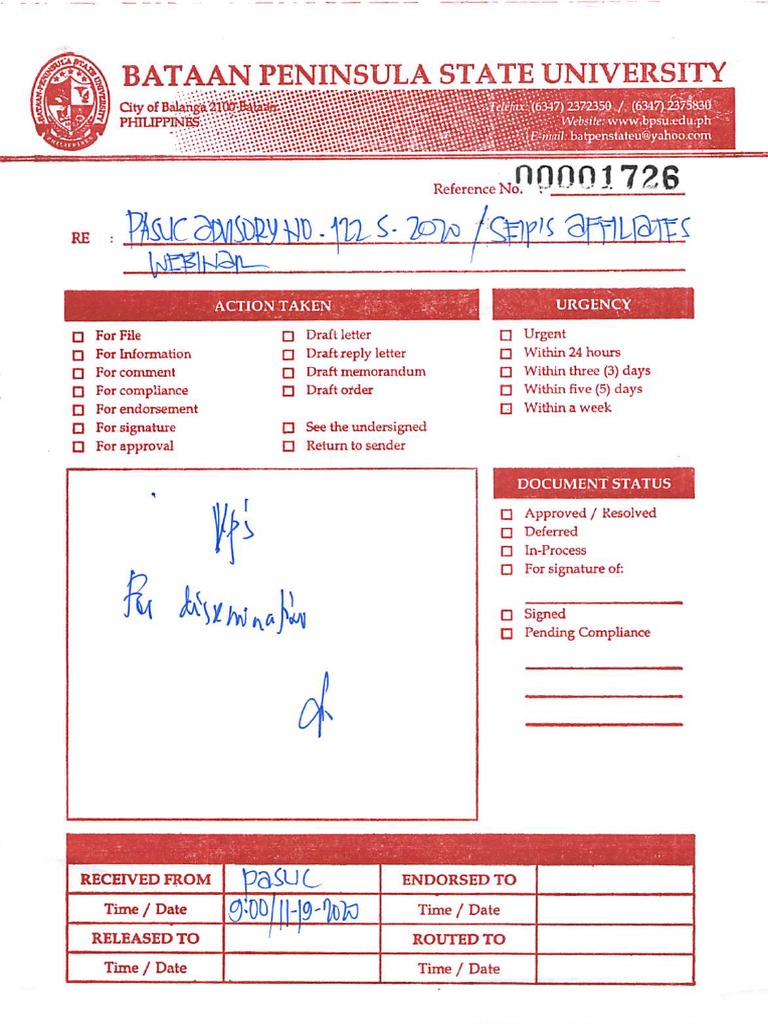 BATAAN PENINSULA STATE UNIVERSITY
City of Balanga 2100 Bataan
PHILIPPINES
Telefax: (6347) 2372350 / (6347) 2375830
Website: www.bpsu.edu.ph
E-mail: batpenstateu@yahoo.com
Reference No. : 00001726
RE : PASUC ADVISORY NO. 122 S. 2020 / SEIPI'S AFFILIATES
WEBINAR
ACTION TAKEN
For File
For Information
For comment
For compliance
For endorsement
For signature
For approval
Draft letter
Draft reply letter
Draft memorandum
Draft order
See the undersigned
Return to sender
URGENCY
Urgent
Within 24 hours
Within three (3) days
Within five (5) days
Within a week
VP's
For dissemination
DOCUMENT STATUS
Approved / Resolved
Deferred
In-Process
For signature of:
Signed
Pending Compliance
RECEIVED FROM PASUC ENDORSED TO
Time / Date 9:00/11-19-2020 Time / Date
RELEASED TO ROUTED TO
Time / Date Time / Date